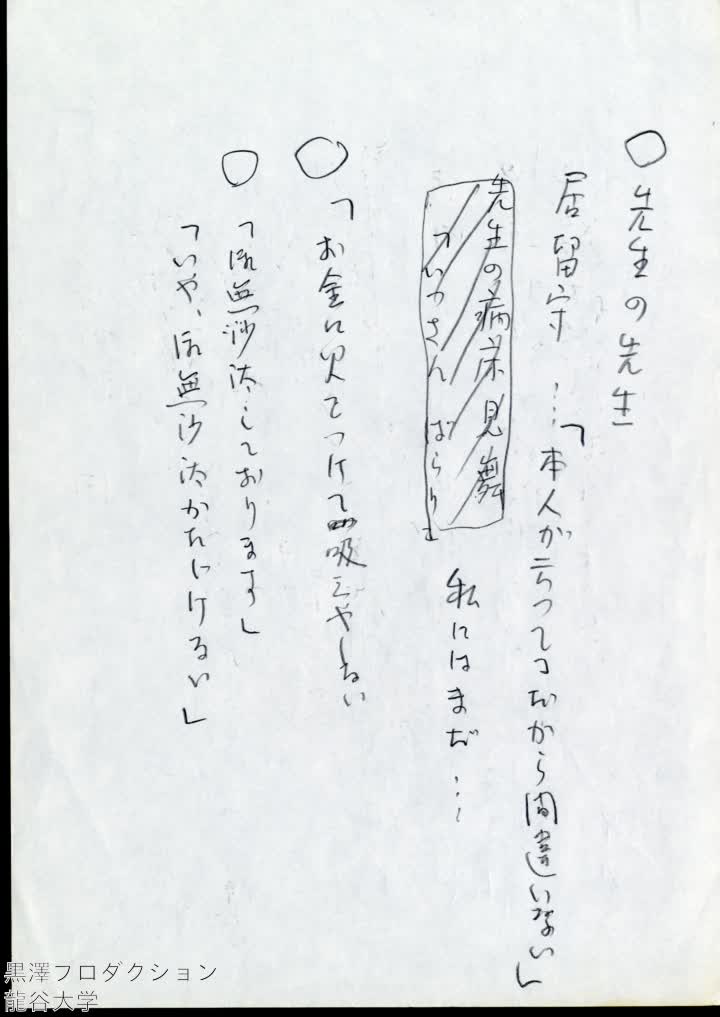 ○先生の先生
居留守…「本人が云ってんだから間違いない」
先生の病床見舞
私にはまだ…
○「お金に火をつけて吸えやしない
○「御無沙汰しております」
「いや、御無沙汰かたじけない」
黒澤プロダクション
龍谷大学